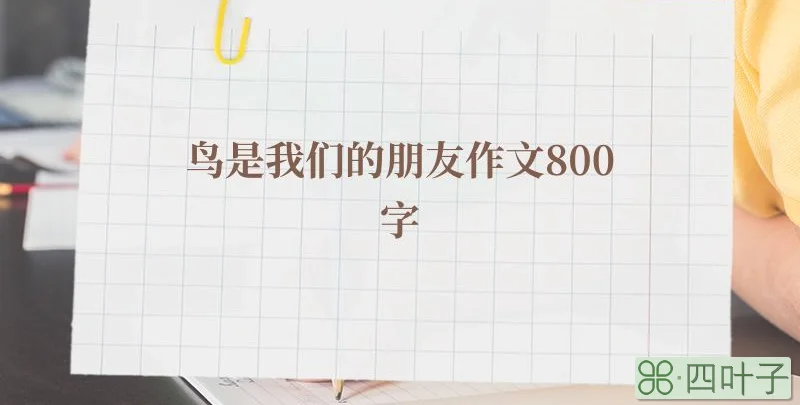 鸟是我们的朋友作文800
字
四叶子